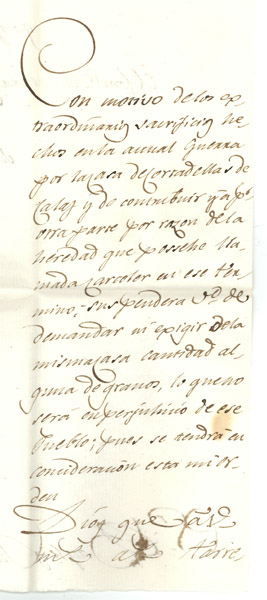 Con motivo de los ex-
traordinarios sacrificios he-
chos en la actual Guerra
por la casa de Cortadellas de
Calaf y de contribuir ya pr.
otra parte por razon de la
heredad que posseho lla-
mada Carceler en ese ter-
mino; suspendera Vd. de
demandar ni exigir de la
misma casa cantidad al
guna de granos, lo que no
será en perjuhicio de ese
Pueblo; pues se tendrá en
concideración esta mi or-
den
Dios gue a Vd.
ms. as.